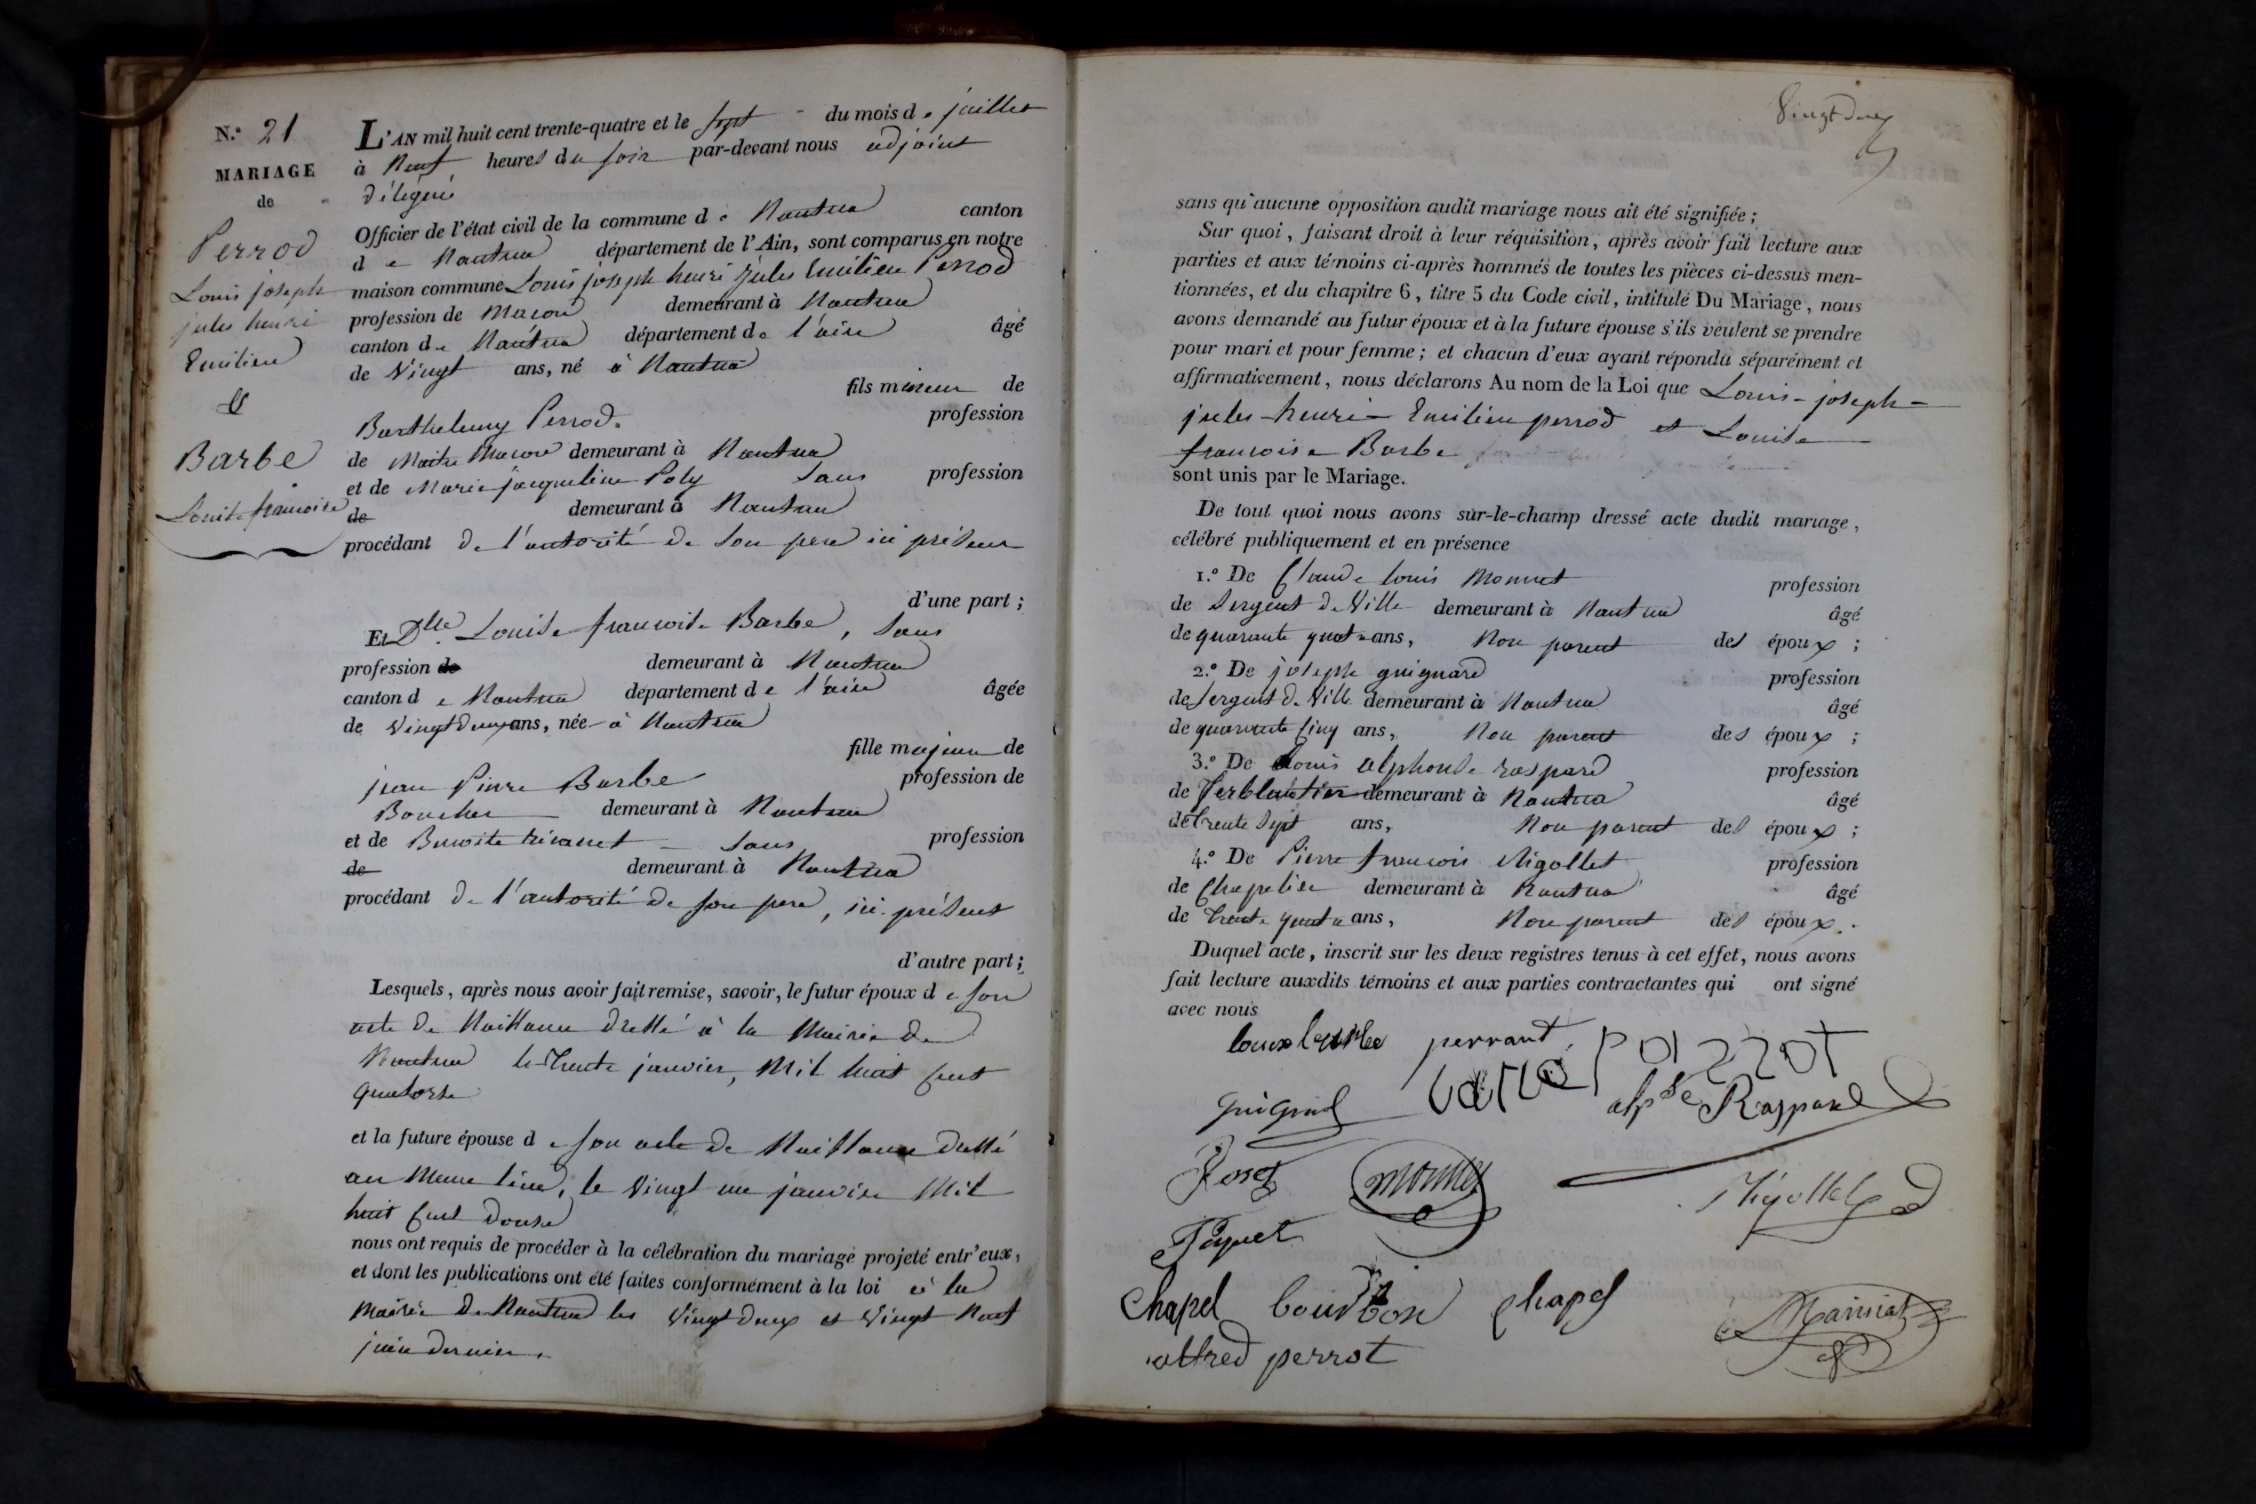 N.° 21
MARIAGE
de
Perrod
Louis joseph
jules henri
Emilien
&
Barbe
Louise francoise
L'AN mil huit cent trente-quatre et le sept du mois de juillet
à Neuf heures du soir par-devant nous adjoint
délégué
Officier de l'état civil de la commune de Nantua canton
de Nantua département de l'Ain, sont comparus en notre
maison commune Louis joseph henri jules Emilien Perrod
profession de Macon demeurant à Nantua
canton de Nantua département de l'ain âgé
de Vingt ans, né à Nantua
fils mineur de
Barthelemy Perrod. profession
de Maitre Macon demeurant à Nantua
et de Marie jacqueline Poly Sans profession
de demeurant à Nantua
procédant de l'autorité de son pere ici présent
d'une part ;
Et Dlle Louise francoise Barbe, Sans
profession de demeurant à Nantua
canton de Nantua département de l'ain âgée
de Vingt deux ans, née à Nantua
fille majeure de
jean Pierre Barbe profession de
Boucher demeurant à Nantua
et de Benoite sans profession
de demeurant à Nantua
procédant de l'autorité de son pere, ici présent
d'autre part ;
Lesquels, après nous avoir fait remise, savoir, le futur époux de son
acte de Naissance dressé à la Mairie de
Nantua le trente janvier, Mil huit Cent
quatorse
et la future épouse de son acte de Naissance dressé
au Meme lieu, le Vingt un janvier Mil
huit Cent douse
nous ont requis de procéder à la célébration du mariage projeté entr'eux,
et dont les publications ont été faites conformément à la loi à la
Mairie de Nantua les Vingt deux et Vingt Neuf
juin dernier.
Vingt deux
sans qu'aucune opposition audit mariage nous ait été signifiée ;
Sur quoi, faisant droit à leur réquisition, après avoir fait lecture aux
parties et aux témoins ci-après nommés de toutes les pièces ci-dessus men-
tionnées, et du chapitre 6, titre 5 du Code civil, intitulé Du Mariage, nous
avons demandé au futur époux et à la future épouse s'ils veulent se prendre
pour mari et pour femme ; et chacun d'eux ayant répondu séparément et
affirmativement, nous déclarons Au nom de la Loi que Louis-joseph-
jules-henri-Emilien perrod et Louise
francoise Barbe
sont unis par le Mariage.
De tout quoi nous avons sur-le-champ dressé acte dudit mariage,
célébré publiquement et en présence
1.° De Claude louis Monnet profession
de Sergent de Ville demeurant à Nantua âgé
de quarante quatre ans, Non parent des époux ;
2.° De joseph guignard profession
de Sergent de Ville demeurant à Nantua âgé
de quarante Cinq ans, Non parent des époux ;
3.° De Louis alphonse raspard profession
de ferblantier demeurant à Nantua âgé
de trente Sept ans, Non parent des époux ;
4.° De Pierre francois Nigollet profession
de Chapelier demeurant à Nantua âgé
de trente quatre ans, Non parent des époux.
Duquel acte, inscrit sur les deux registres tenus à cet effet, nous avons
fait lecture auxdits témoins et aux parties contractantes qui ont signé
avec nous
perraut
alpse Raspard
monnet
Nigollet
Chapel bourbon chapel
alfred perrot